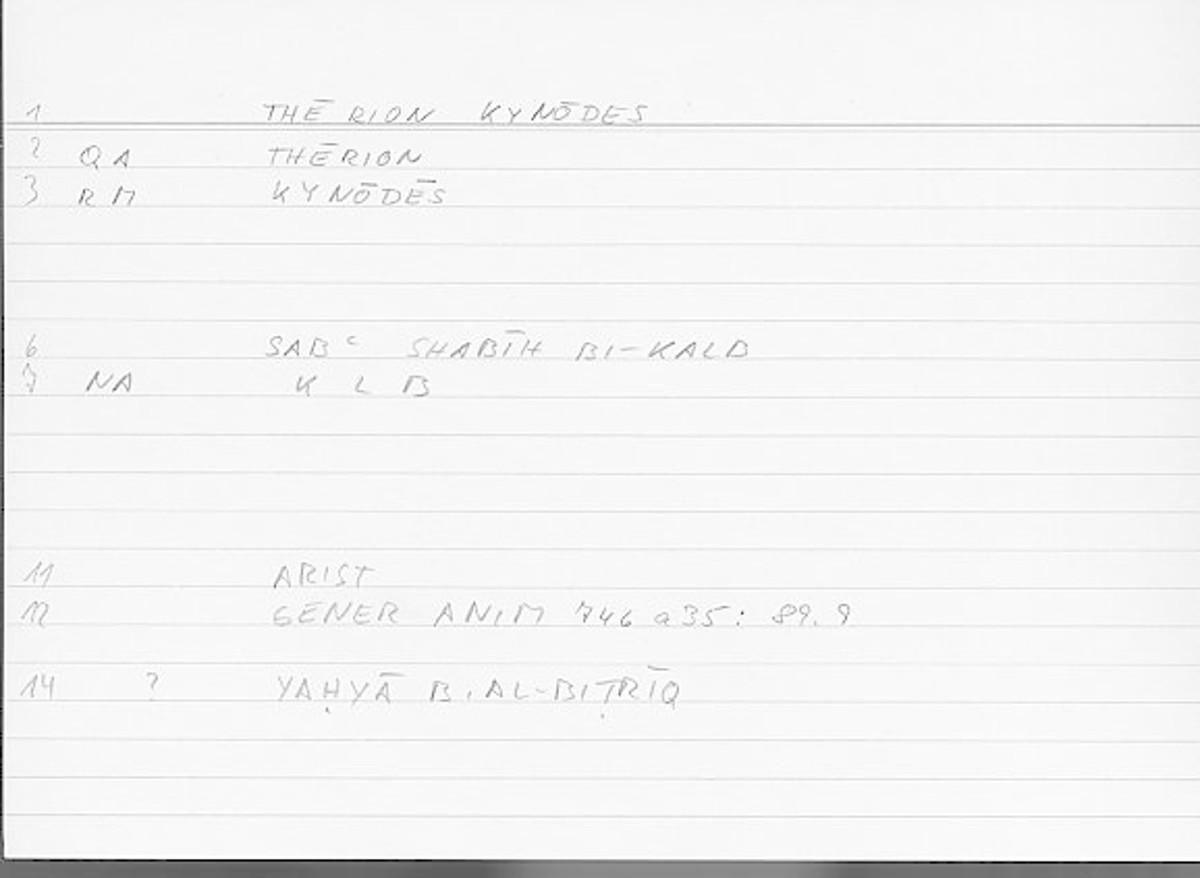 1 THĒRION KYNŌDES
2 QA THĒRION
3 RM KYNŌDĒS
6 SABᶜ SHABĪH BI-KALB
7 NA K L B
11 ARIST
12 GENER ANIM 746 a35: 89.9
14 ? YAḤYĀ B. AL-BIṬRĪQ